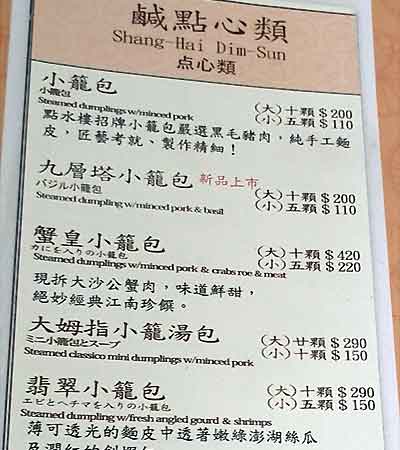 鹹點心類
Shang-Hai Dim-Sun
点心類
小籠包
小籠包
Steamed dumplings w/minced pork
(大)十顆 $ 200
(小)五顆 $ 110
點水樓招牌小籠包嚴選黑毛豬肉，純手工麵
皮，匠藝考就、製作精細！
九層塔小籠包 新品上市
バジル小籠包
Steamed dumpling w/minced pork & basil
(大)十顆 $ 200
(小)五顆 $ 110
蟹皇小籠包
かにを入りの小籠包
Steamed dumplings w/minced pork & crabs roe & meat
(大)十顆 $ 420
(小)五顆 $ 220
現拆大沙公蟹肉，味道鮮甜，
絕妙經典江南珍饌。
大姆指小籠湯包
ミニ小籠包とスープ
Steamed classico mini dumplings w/minced pork
(大)廿顆 $ 290
(小)十顆 $ 150
翡翠小籠包
エビとヘチマを入りの小籠包
Steamed dumpling w/fresh angled gourd & shrimps
(大)十顆 $ 290
(小)五顆 $ 150
薄可透光的麵皮中透著嫩綠澎湖絲瓜